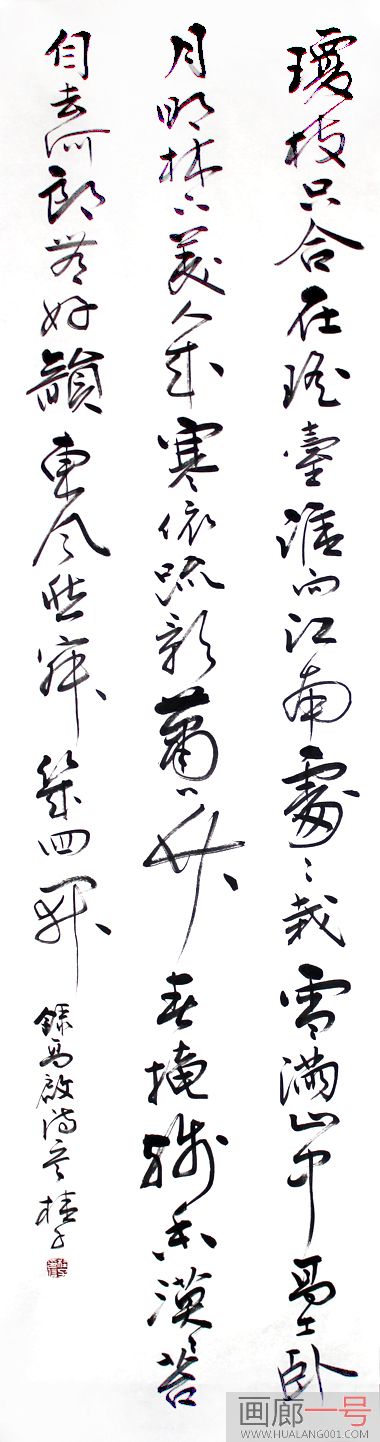 瓊枝只合在瑤臺誰向江南處〻栽雪滿山中高士卧
月明林下美人来寒依疏影蕭〻竹春掩殘香漠〻苔
自去何郎無好韻東風愁寂幾回開
錄高啟詩 桂子
画廊一号
WWW.HUALANG001.COM